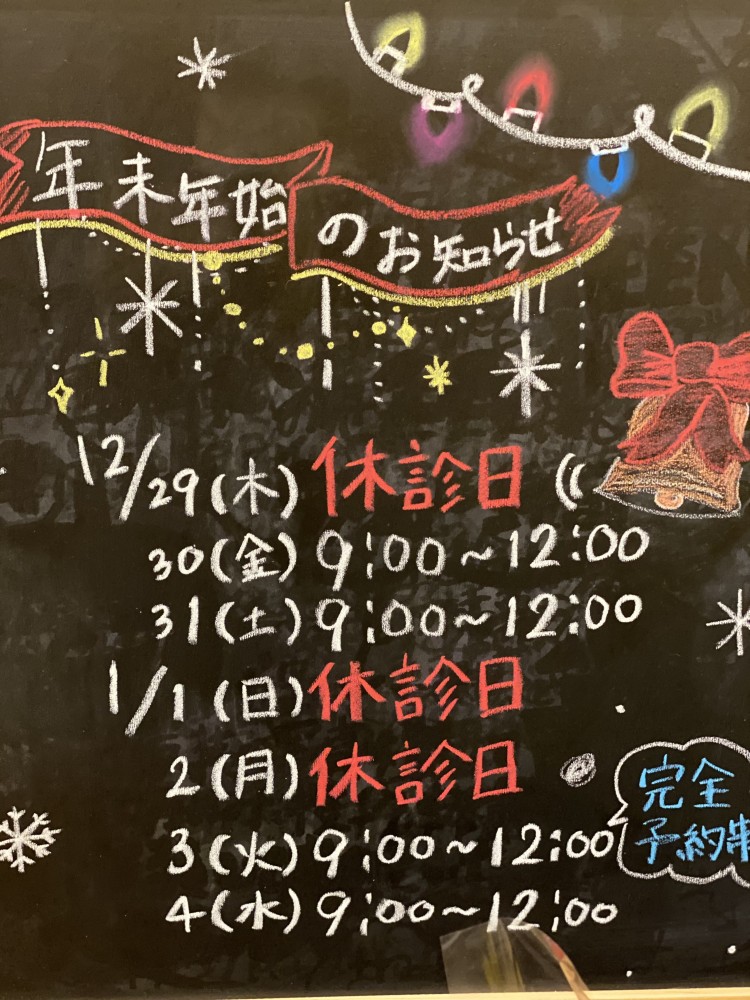 年末年始
のお知らせ
12/29(木)休診日
30(金)9:00~12:00
31(土)9:00~12:00
1/1(日)休診日
2(月)休診日
3(火)9:00~12:00
4(水)9:00~12:00
完全
予約制